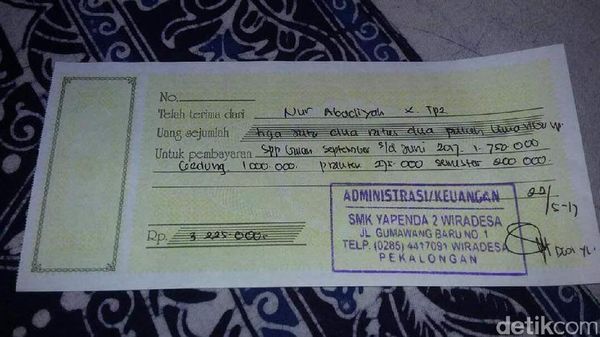 No.
Telah terima dari Nur Abadiyah X. Tp2
Uang sejumlah tiga juta dua ratus dua puluh lima ribu rp
Untuk pembayaran SPP bulan September s/d Juni 2017. 1.750 000
Gedung 1.000.000. 000 semester 200 000
ADMINISTRASI/KEUANGAN
SMK YAPENDA 2 WIRADESA
JL GUMAWANG BARU NO 1
TELP. (0285) 4417091 WIRADESA
PEKALONGAN
Rp. 3.225.000,-
detikcom